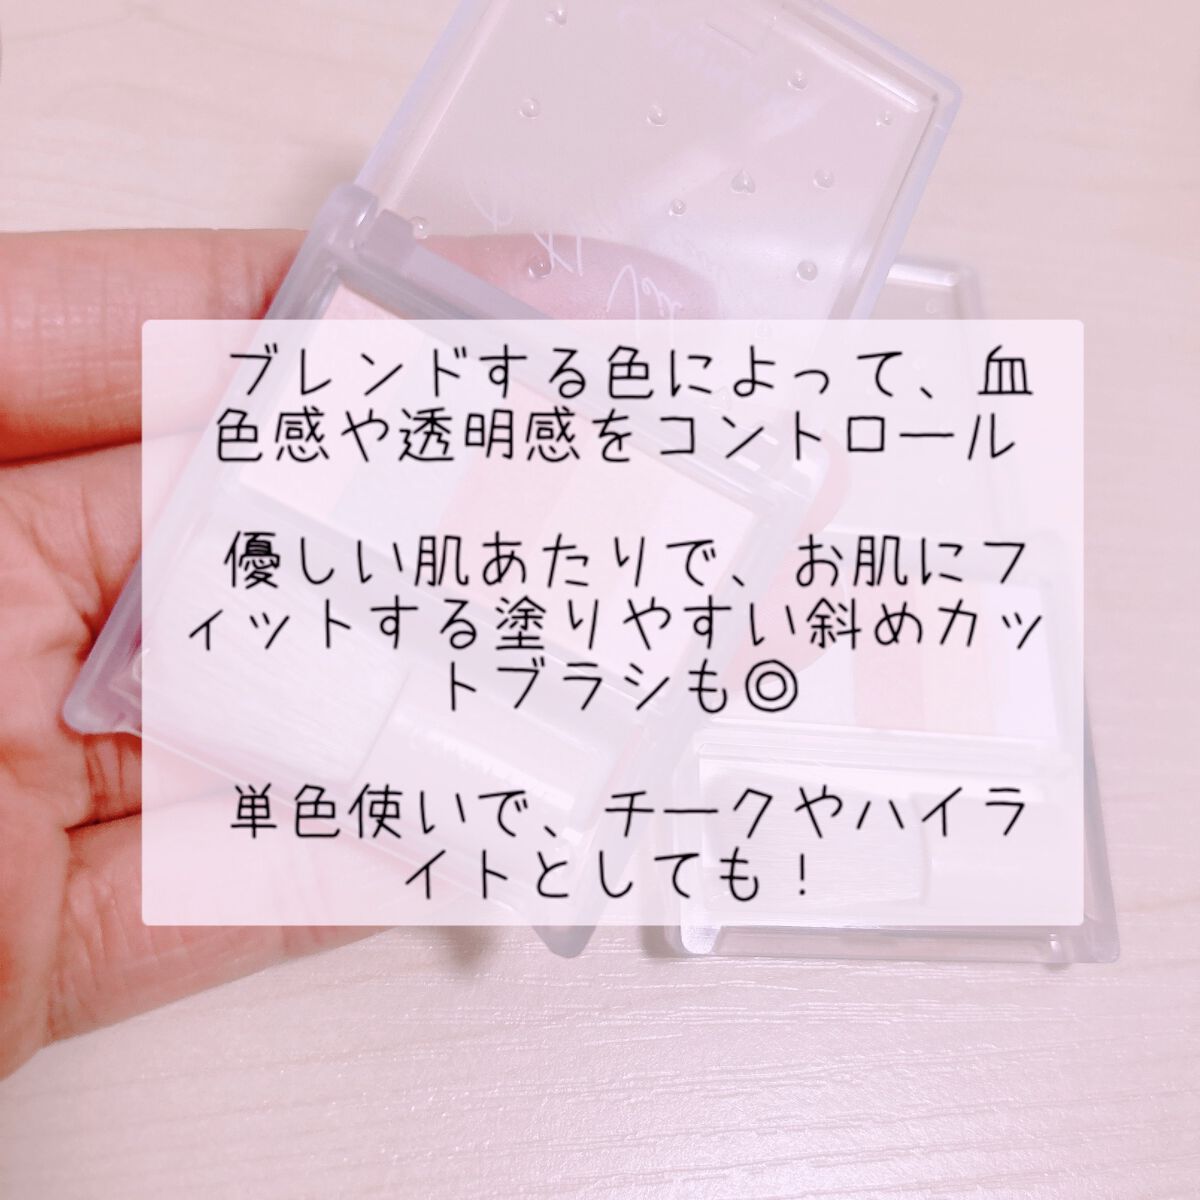 ブレンドする色によって、血
色感や透明感をコントロール
優しい肌あたりで、お肌にフ
ィットする塗りやすい斜めカッ
トブラシも◎
単色使いで、チークやハイラ
イトとしても！